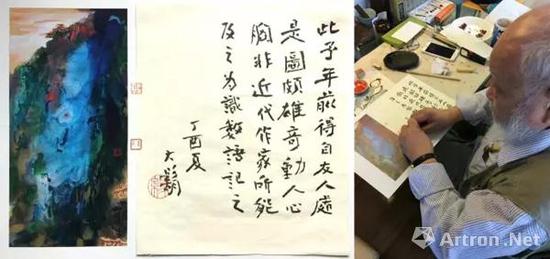 此予年前得自友人處
是圖頗雄奇動人心
胸非近代作家所能
及之為識數語記之
丁酉夏
大
Artron.Net